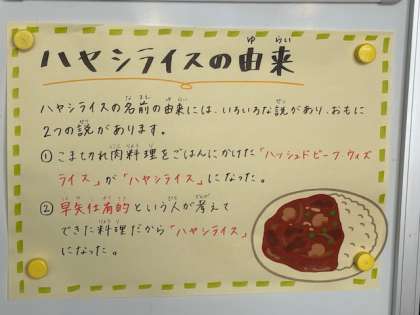 ゆ らい
ハヤシライスの由来
ハヤシライスの名前の由来には、いろいろな説があり、おもに
2つの説があります。
① こまぎれ肉料理をごはんにかけた「ハッシュドビーフ・ウィズ
ライス」が「ハヤシライス」になった。
② 早矢仕有的という人が考えて
できた料理だから「ハヤシライス」
になった。